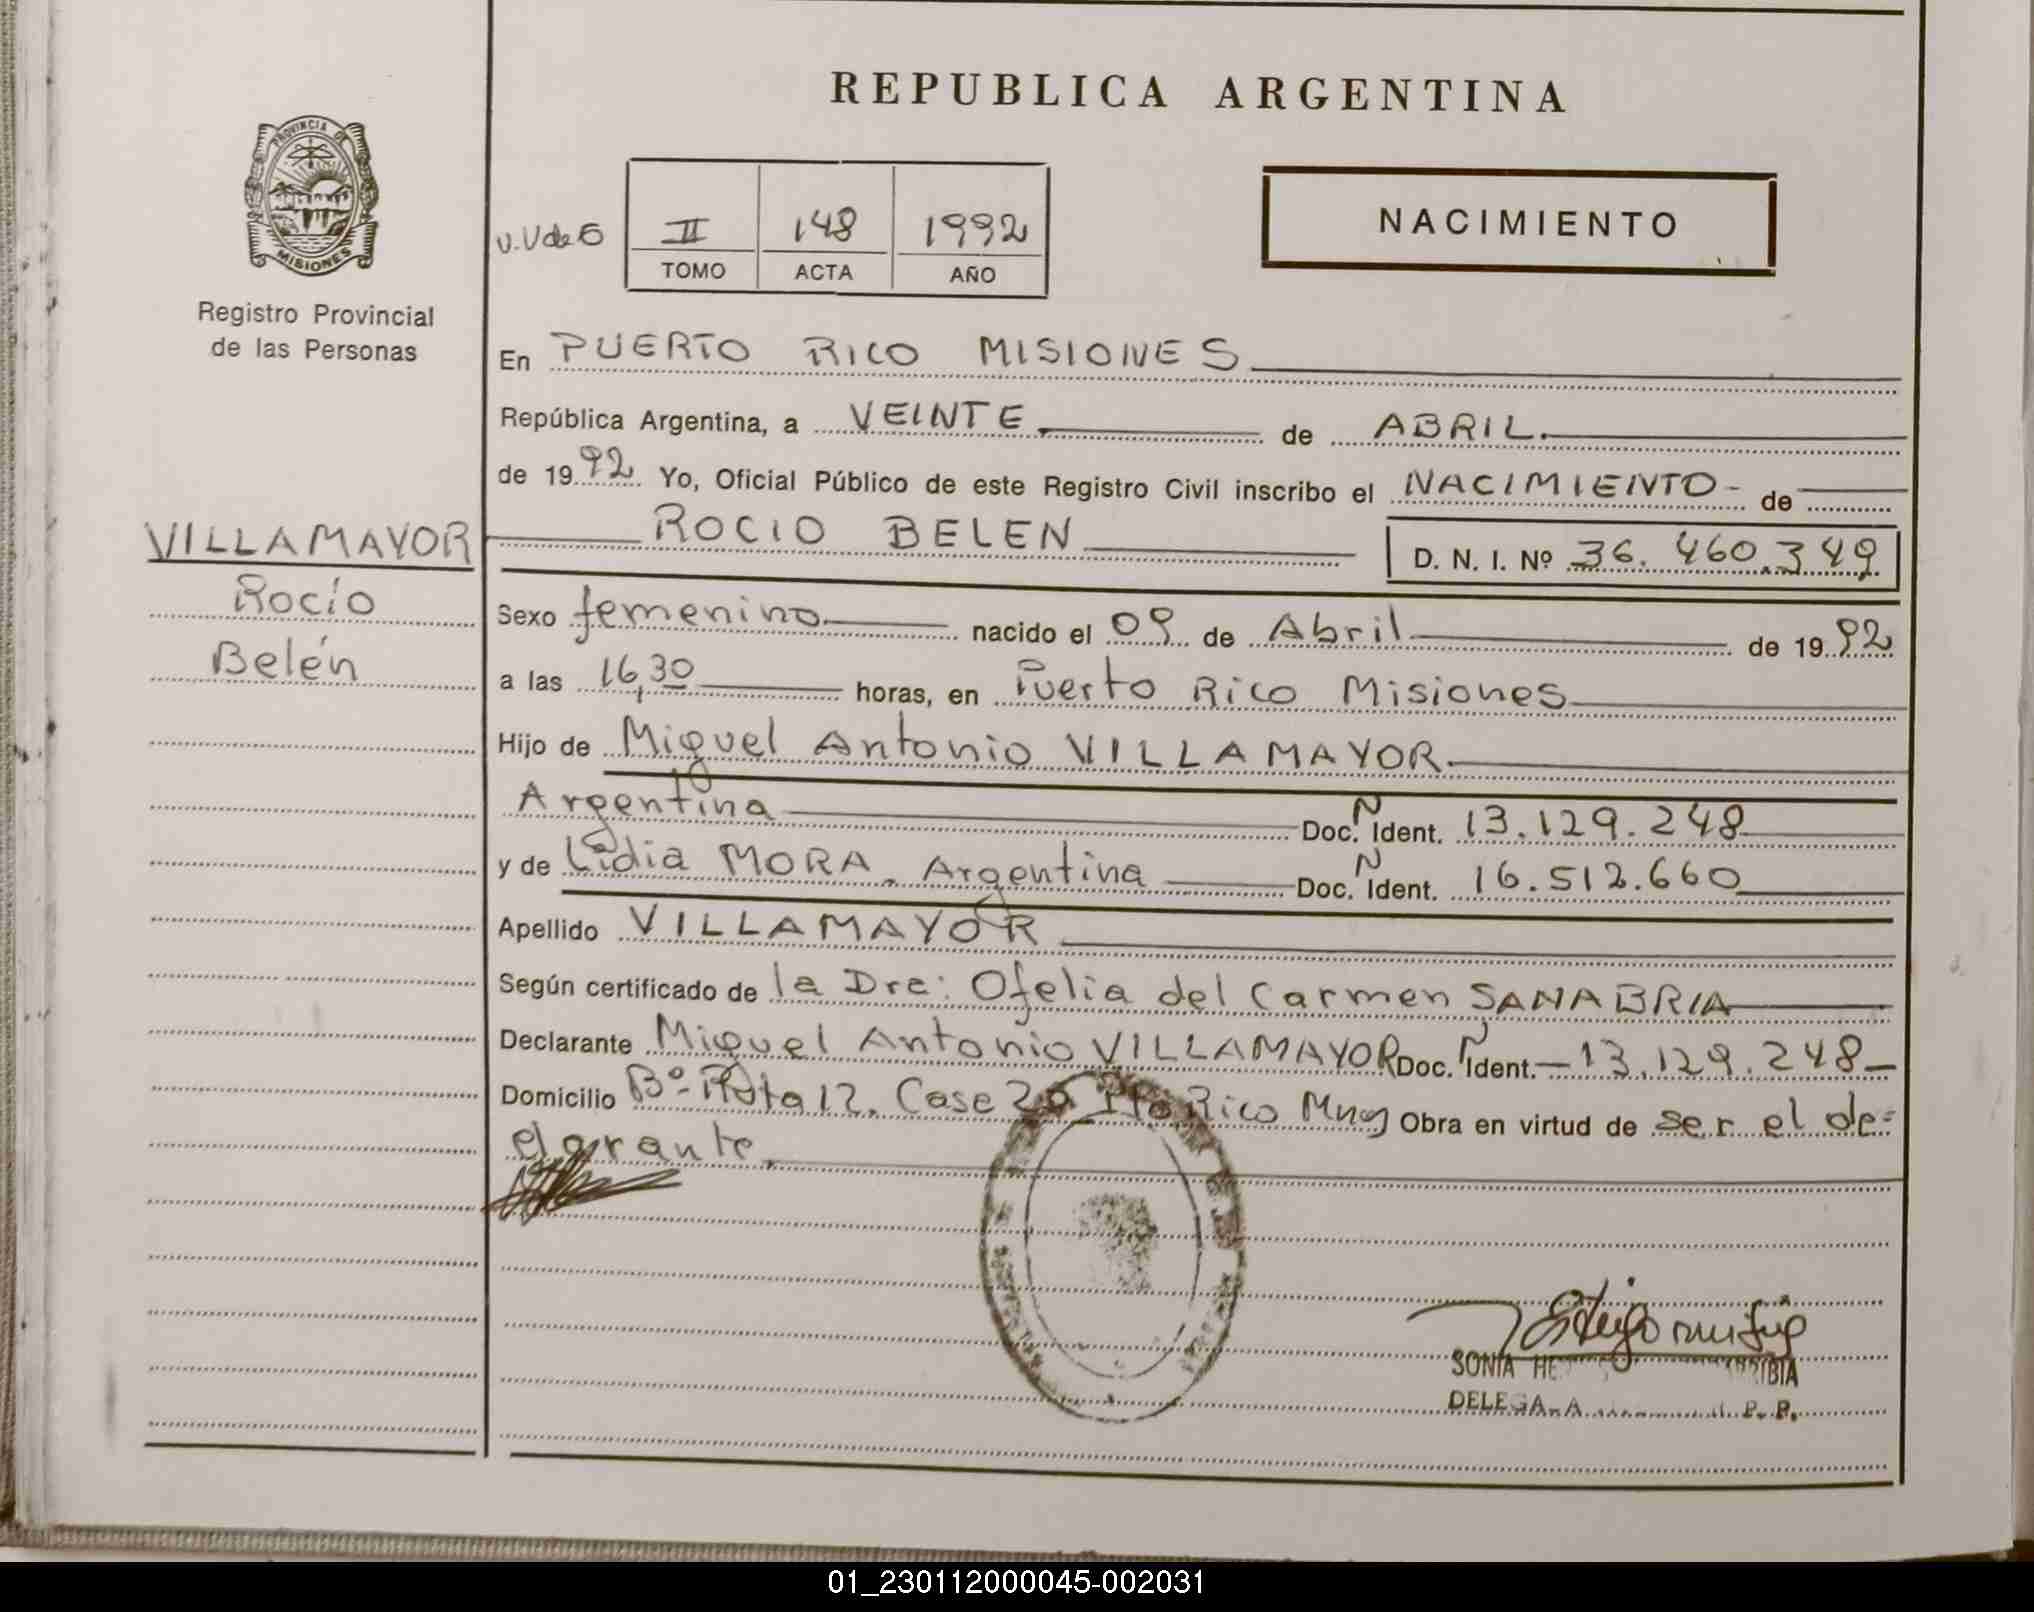 REPUBLICA ARGENTINA
PROVINCIA DE
MISIONES
Registro Provincial
de las Personas
II 148 1992
TOMO ACTA AÑO
NACIMIENTO
En PUERTO RICO MISIONES
República Argentina, a VEINTE de ABRIL.
de 1992 Yo, Oficial Público de este Registro Civil inscribo el NACIMIENTO - de
VILLAMAYOR
Rocío
Belén
ROCIO BELEN D. N. I. Nº 36.460.349
Sexo femenino nacido el 09 de Abril de 1992
a las 16,30 horas, en Puerto Rico Misiones
Hijo de Miguel Antonio VILLAMAYOR.
Argentina Doc. Ñ Ident. 13.129.248
y de Lidia MORA. Argentina Doc. Ñ Ident. 16.512.660
Apellido VILLAMAYOR
Según certificado de la Dra: Ofelia del Carmen SANABRIA
Declarante Miguel Antonio VILLAMAYOR Doc. Ñ Ident. - 13.129.248 -
Domicilio Bº- Ruta 12. Case 20 Pto Rico Mnes Obra en virtud de ser el de=
clarante.
SONIA
01_230112000045-002031